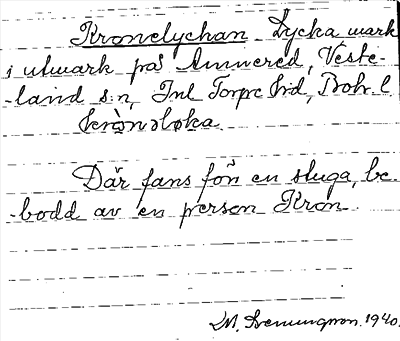 Kronelychan Lycka mark
i utmark på Anneröd, Veste-
-land s:n, Inl Torpe hd, Boh. l.
krònəløka
Där fans förr en stuga, be-
-bodd av en person Kron
M. Hemmingson. 1940.